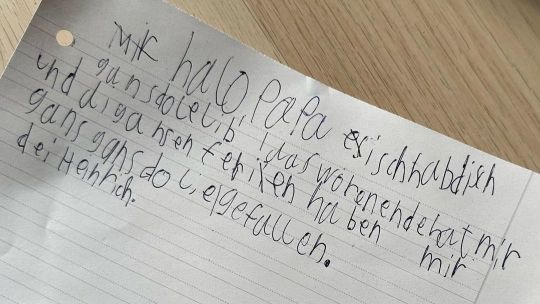 MiK halo PaPa esischhabdich
gansdolelib! daswohenendehat mir
und digansen Ferixen haben mir
gansgansdoll efgefallen.
dei Heinrich.